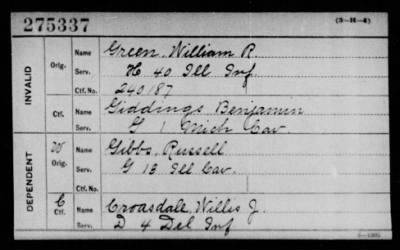 275337 (3-H-4)
INVALID
Orig. Name Green, William R
Serv. H 40 Ill Inf.
Ctf. No. 240187
Ctf. Name Giddings Benjamin
Serv. G 1 Mich Cav
DEPENDENT
W Orig. Name Gibbs, Russell
Serv. G 13 Ill Cav.
Ctf. No.
C Ctf. Name Croasdale, Willis J.
Serv. D 4 Del Inf